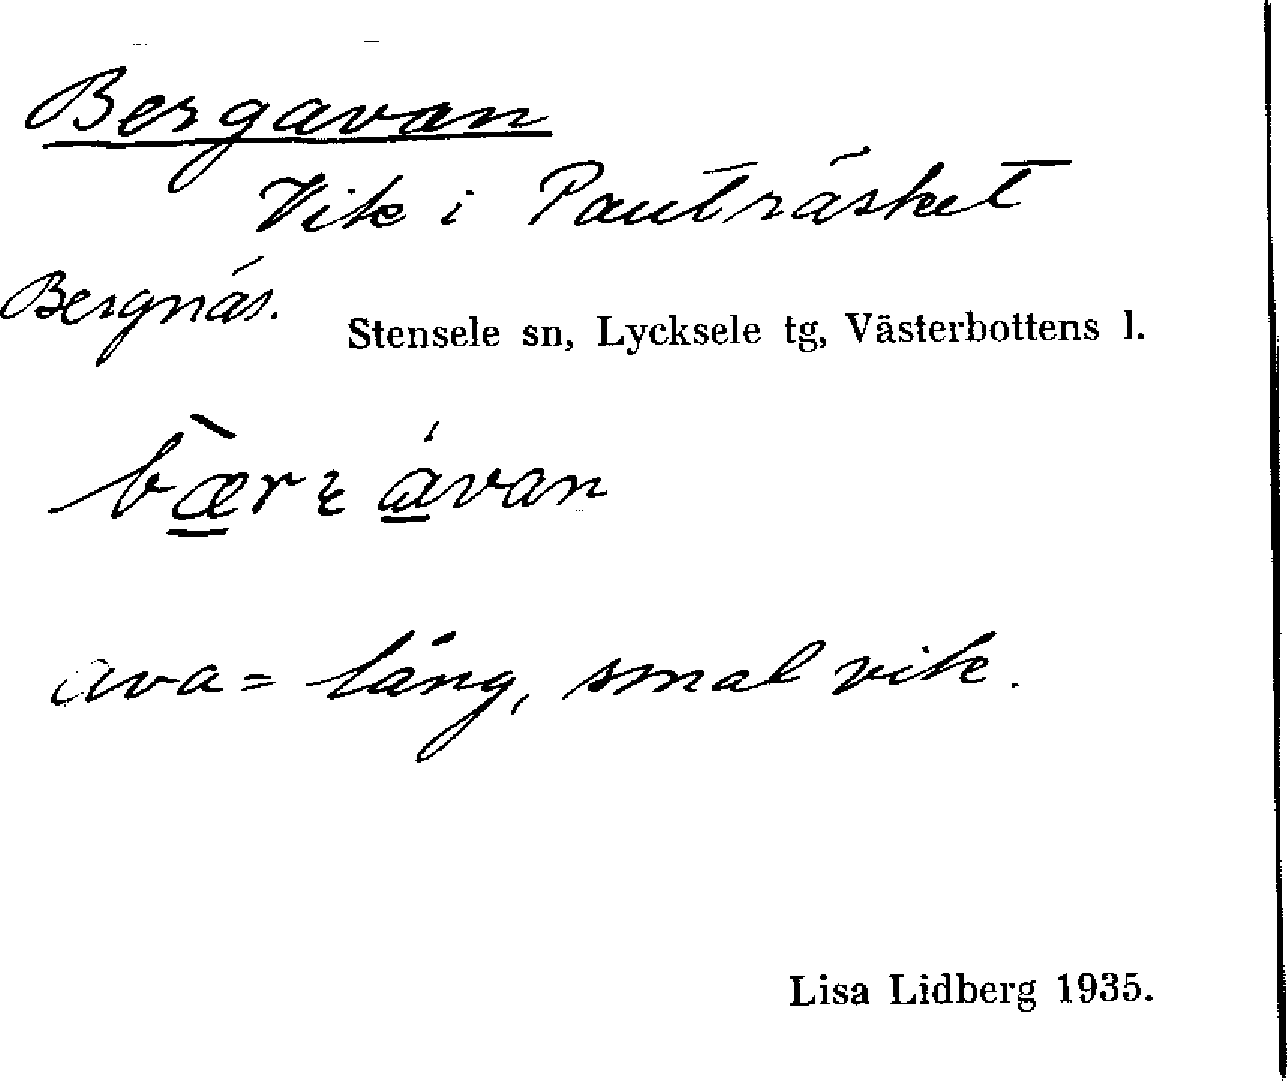 Bergavan
Vik i Pauträsket
Bergnäs.
Stensele sn, Lycksele tg, Västerbottens l.
ava = lång, smal vik.
Lisa Lidberg 1935.